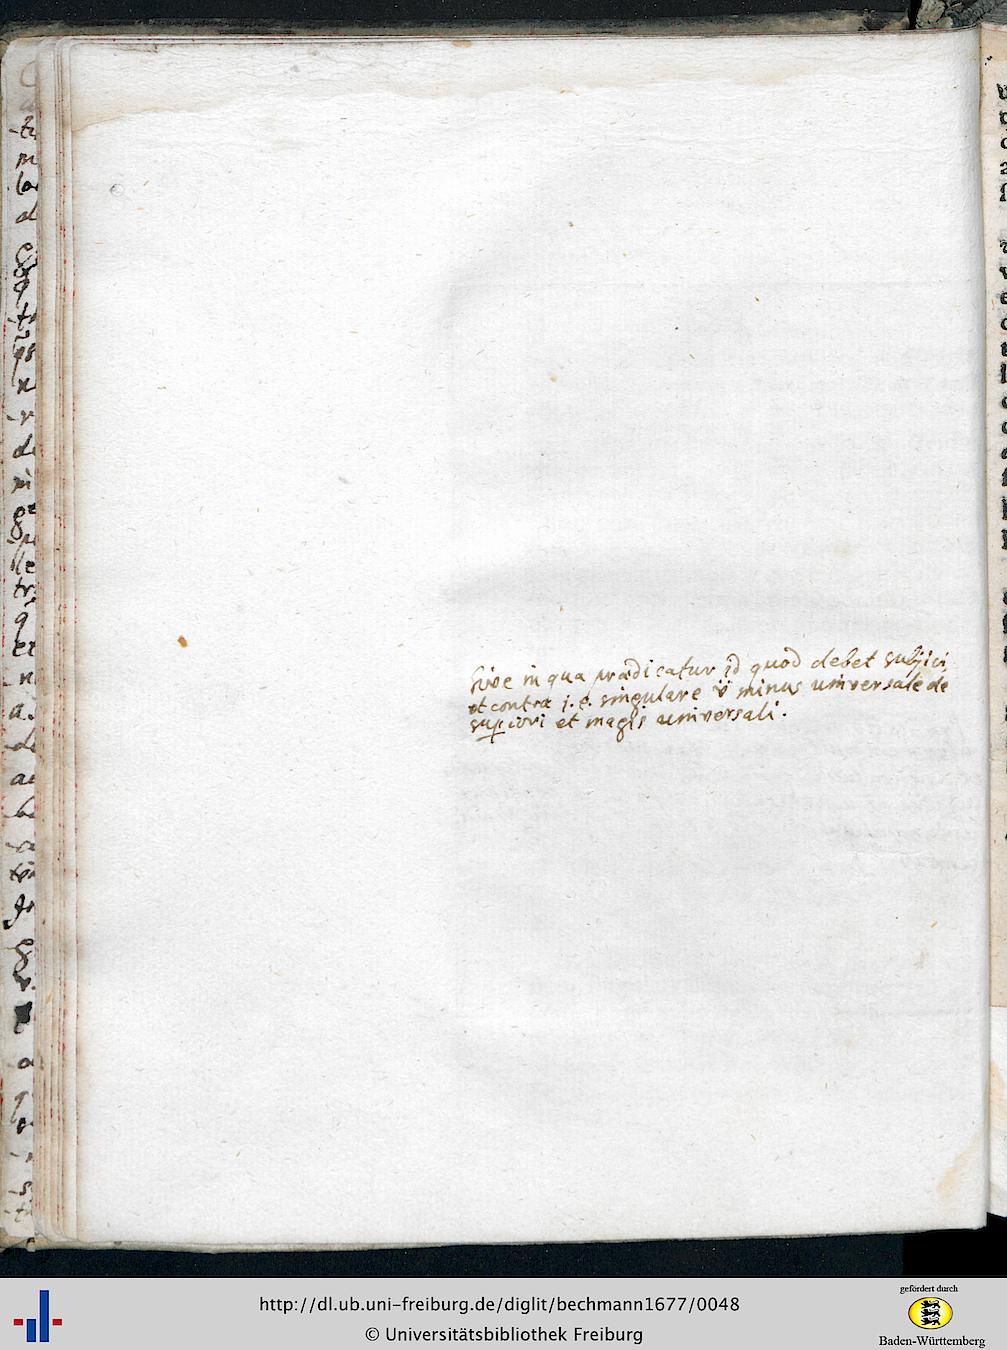 Sive in qua prædicatur id quod debet subjici
et contra j. e. singulare v̄ minus universale de
suꝑiori et magis universali.
http://dl.ub.uni-freiburg.de/diglit/bechmann1677/0048
© Universitätsbibliothek Freiburg
gefördert durch
Baden-Württemberg